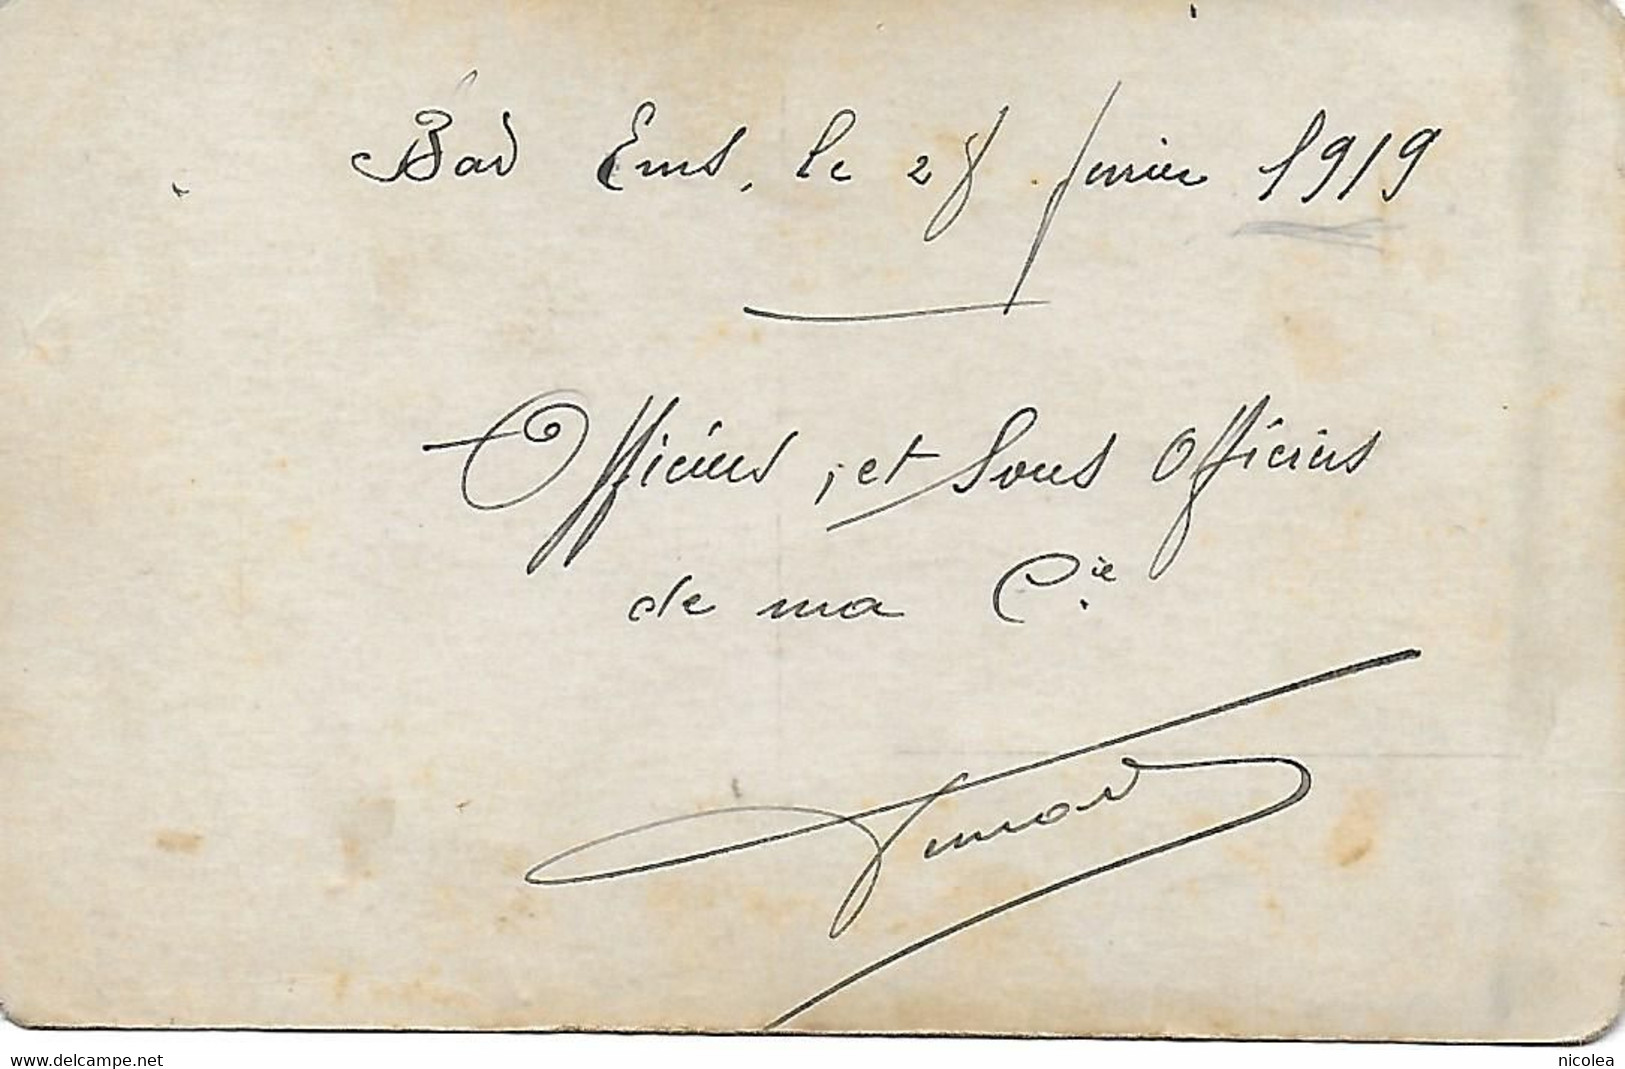 Bad Ems, le 28 février 1919
Officiers, et Sous Officiers
de ma Cie
www.delcampe.net
nicolea